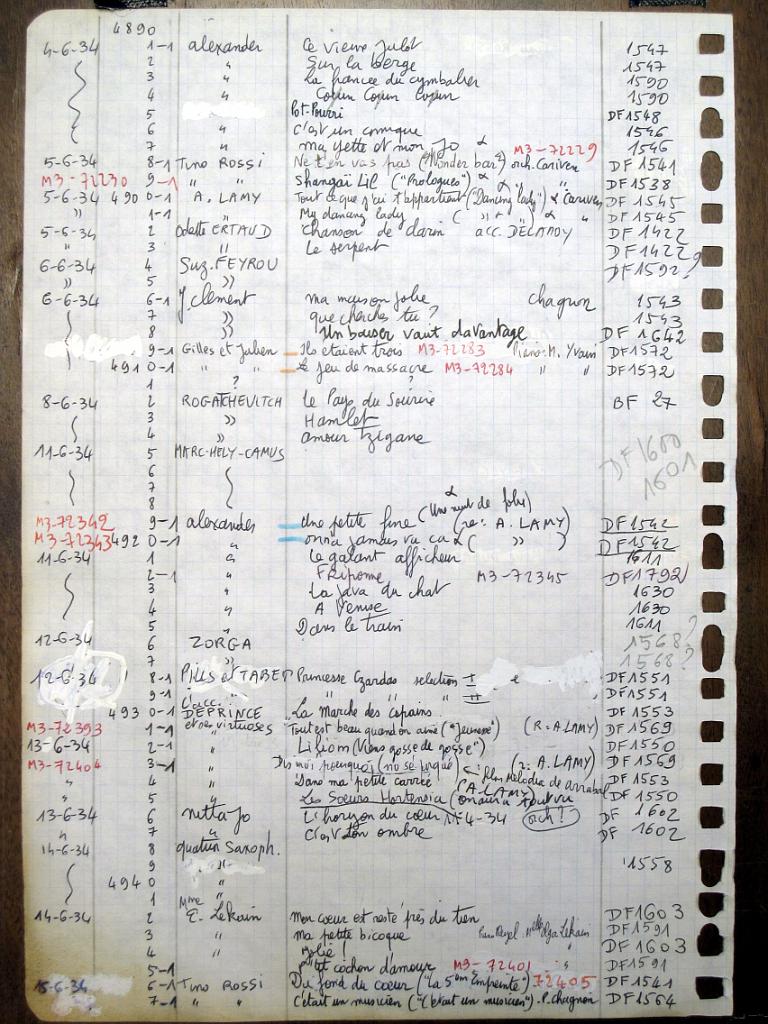 4890
4-6-34 1-1 alexander Ce vieux Julot 1547
2 " Sur la berge 1547
3 " La fiancée du cymbalier 1590
4 " Copin Copin Copin 1590
5 Pot-Pourri DF 1548
6 " c'est un comique 1546
7 " ma Yette et mon Jo 1546
5-6-34 8-1 Tino ROSSI Ne t'en vas pas (Wonder bar) orch. Cariven M3-72229 DF 1541
M3-72230 9-1 " " Shangaï Lil ("Prologues") " " DF 1538
5-6-34 490 0-1 A. LAMY Tout ce que j'ai t'appartient ("Dancing lady") Cariven DF 1545
" 1-1 " My dancing lady ( " " ) " DF 1545
5-6-34 2 Odette ERTAUD Chanson de acc. DELANOY DF 1422
" 3 " Le serpent DF 1422
6-6-34 4 Suz. FEYROU DF 1592?
" 5 "
6-6-34 6-1 J. Clement ma maison jolie Chagnon 1543
7 " que cherches tu? 1543
8 " Un baiser vaut davantage DF 1642
9-1 Gilles et Julien Ils étaient trois M3-72283 Piano: M. Yvain DF 1572
491 0-1 " " Le jeu de massacre M3-72284 " " DF 1572
1 ? ?
8-6-34 2 ROGATCHEVITCH Le Pays du Sourire BF 27
3 " Hamlet
4 " amour Tzigane
11-6-34 5 MARC-HELY-CAMUS DF 1600
6 1601
7
8
M3-72342 9-1 alexander Une petite fine (Une nuit de folie) (re: A. LAMY) DF 1542
M3-72343 492 0-1 " on n'a jamais vu ça ( " ) DF 1542
11-6-34 1 " Le galant afficheur 1611
2-1 " Friponne M3-72345 DF 1792
3 " La Java du chat 1630
4 " A Venise 1630
5 " Dans le train 1611
12-6-34 6 ZORGA 1568?
7 " 1568?
12-6-34 8-1 PILLS et TABET Princesse Czardas selection I DF 1551
9-1 " " " " II DF 1551
493 0-1 L'acc. DEPRINCE La Marche des copains DF 1553
M3-72393 1-1 et ses virtuoses Tout est beau quand on aime ("Jeunesse") (R: A. LAMY) DF 1569
13-6-34 2-1 " Liliom (Viens gosse de gosse") DF 1550
M3-72404 3-1 " Dis moi pourquoi (no se porqué) (r: A. LAMY) DF 1569
" 4 " Dans ma petite carrée film Melodia de arrabal DF 1553
" 5 " Les Soeurs Hortensia (on aura tout vu (A. LAMY) DF 1550
13-6-34 6 nitta Jo L'horizon du coeur N°4-34 (orch!) DF 1602
" 7 " C'est ton ombre DF 1602
14-6-34 8 quatuor Saxoph. 1558
9 "
494 0 "
1 "
14-6-34 2 Mme E. Lekain Mon coeur est resté près du tien DF 1603
3 " ma petite bicoque Melle Olga Lekain DF 1591
4 " Jolie! " DF 1603
5-1 P'tit cochon d'amour M3-72401 " DF 1591
15-6-34 6-1 Tino ROSSI Du fond du coeur ("La 5ème Empreinte") 72405 DF 1541
7-1 " " C'était un musicien ("C'était un musicien") - P. Chagnon DF 1564